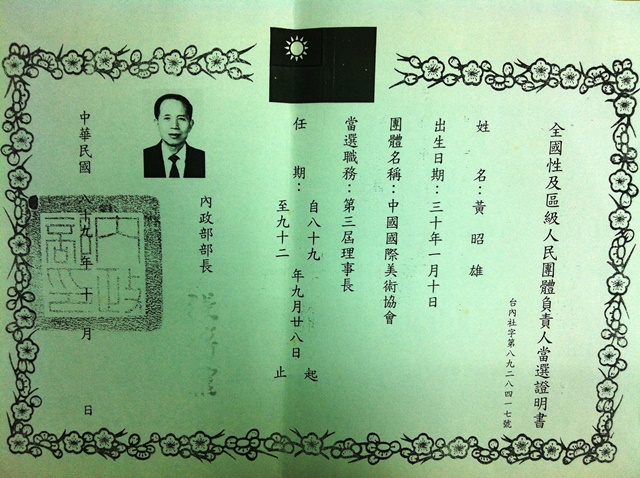 全國性及區級人民團體負責人當選證明書
台內社字第八九二八四一七號
姓　名：黃　昭　雄
出生日期：三十年一月十日
團體名稱：中國國際美術協會
當選職務：第三屆理事長
任　期：自八十九年九月廿八日起
至九十二年九月廿八日止
內政部部長
中華民國八十九年十月　日